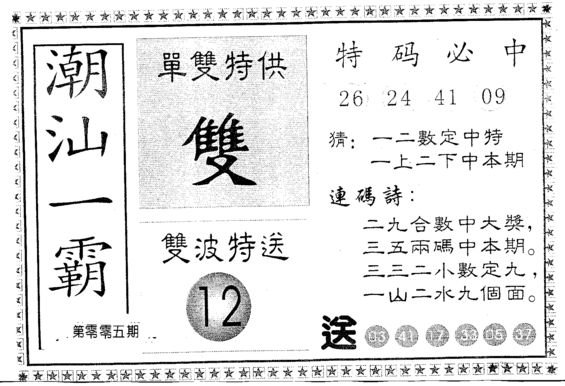 潮汕一霸
第零零五期
單雙特供
雙
雙波特送
12
特码必中
26 24 41 09
猜：一二數定中特
一上二下中本期
連碼詩：
二九合數中大獎，
三五兩碼中本期。
三三二小數定九，
一山二水九個面。
送 03 41 17 33 05 37